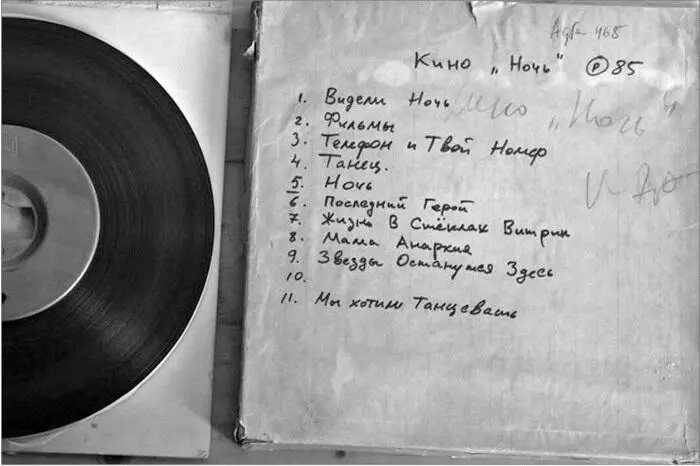 Agfa 468
Кино „Ночь" ℗ 85
1. Видели Ночь
2. Фильмы
3. Телефон и Твой Номер
4. Танец.
5. Ночь
6. Последний Герой
7. Жизнь В Стёклах Витрин
8. Мама Анархия
9. Звезды Останутся Здесь
10.
11. Мы хотим Танцевать
Кино „Ночь"